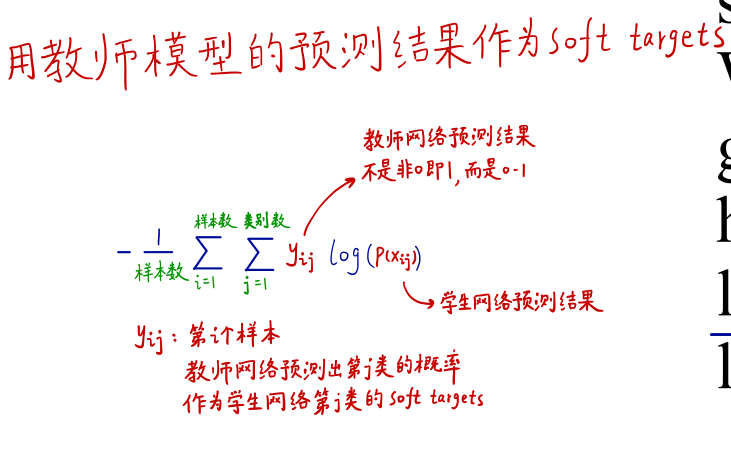 用教师模型的预测结果作为soft targets
教师网络预测结果
不是非0即1,而是0-1
样本数 类别数
- 1/样本数 ∑ i=1 ∑ j=1 yij log(P(xij))
学生网络预测结果
yij:第i个样本
教师网络预测出第j类的概率
作为学生网络第j类的soft targets
g
h
l
l